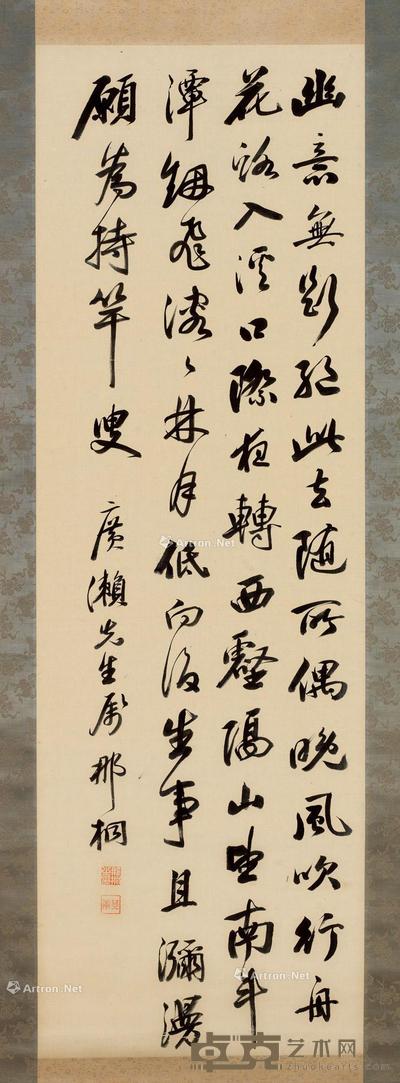 幽意無斷絕此去随所偶晚風吹行舟
花路入溪口際夜轉西壑隔山望南斗
潭烟飛溶々林月低向後生事且瀰漫
願為持竿叟
廣瀨先生屬 那桐
Artron.Net
Artron.Net
Artron.Net
Artron.Net
卓克艺术网